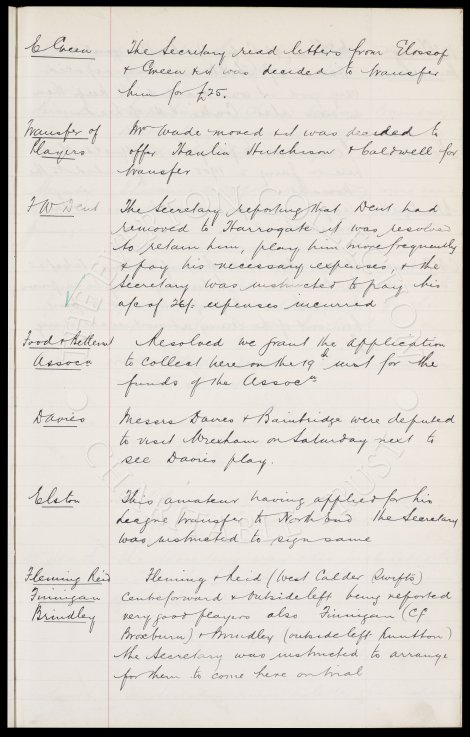 E Green
The Secretary read letters from Glossop
& Green & it was decided to transfer
him for £25.
Transfer of
Players
Mr Wade moved & it was decided to
offer Hamlin Hutchison & Caldwell for
transfer
F W Dent
The Secretary reporting that Dent had
removed to Harrogate it was resolved
to retain him, play him more frequently
& pay his necessary expenses, & the
Secretary was instructed to pay his
a/c of 26/- expenses incurred
Food & Betterment
Assocn
Resolved we grant the application
to collect here on the 19th inst for the
funds of the Assocn
Davies
Messrs Davies & Bainbridge were deputed
to visit Wrexham on Saturday next to
see Davies play.
Elston
This amateur having applied for his
league transfer to North End the Secretary
was instructed to sign same
Fleming Reid
Finnigan
Brindley
Fleming & Reid (West Calder Swifts)
Centreforward & outside left being reported
very good players also Finnigan (C F
Broxburn) & Brindley (outside left Runcorn)
the Secretary was instructed to arrange
for them to come here on trial